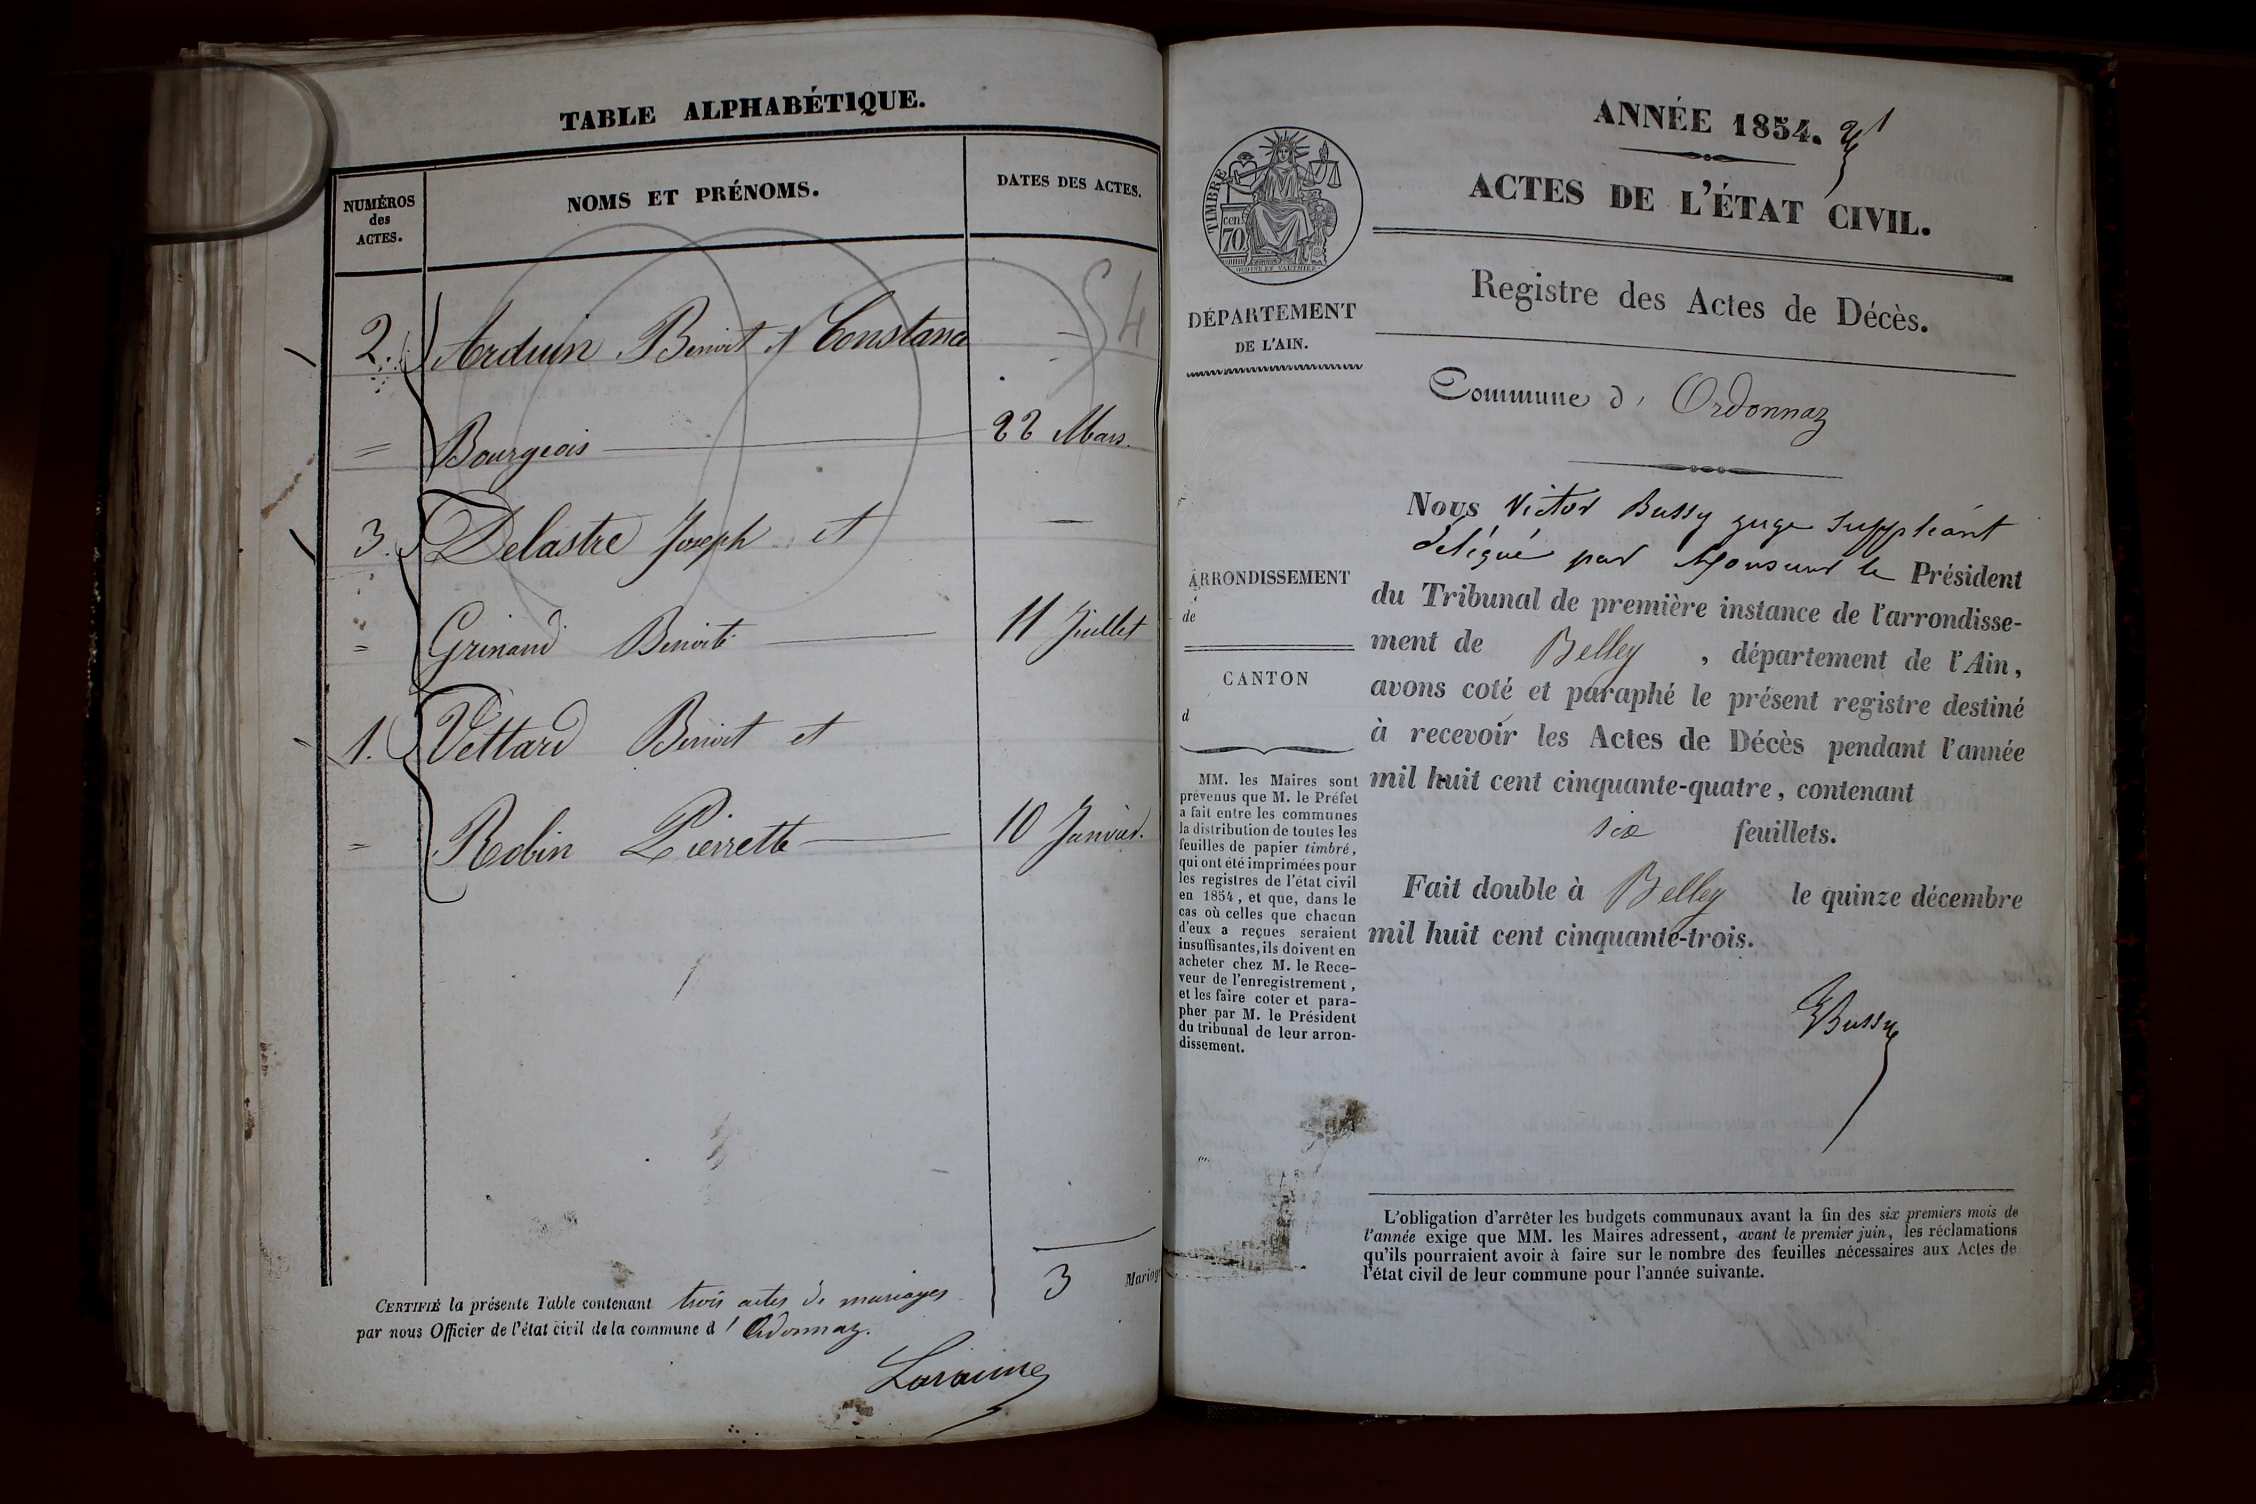 TABLE ALPHABÉTIQUE.
NUMÉROS
des
ACTES.
NOMS ET PRÉNOMS.
DATES DES ACTES.
54
2. Arduin Benoit et Constance
= Bourgeois 22 Mars.
3. Delastre Joseph et
= Grinand Benoite 11 Juillet
1. Vettard Benoit et
= Robin Pierrette 10 Janvier.
3 Mariage
CERTIFIÉ la présente Table contenant trois actes de mariages
par nous Officier de l'état civil de la commune d'Ordonnaz.
ANNÉE 1854.
ACTES DE L'ÉTAT CIVIL.
TIMBRE
cent.
70
Registre des Actes de Décès.
DÉPARTEMENT
DE L'AIN.
Commune d'Ordonnaz
Nous Victor Bussy juge Suppléant
délégué par Monsieur le Président
du Tribunal de première instance de l'arrondisse-
ment de Belley, département de l'Ain,
avons coté et paraphé le présent registre destiné
à recevoir les Actes de Décès pendant l'année
mil huit cent cinquante-quatre, contenant
six feuillets.
Fait double à Belley le quinze décembre
mil huit cent cinquante-trois.
VBussy
ARRONDISSEMENT
de
CANTON
d
MM. les Maires sont
prévenus que M. le Préfet
a fait entre les communes
la distribution de toutes les
feuilles de papier timbré,
qui ont été imprimées pour
les registres de l'état civil
en 1854, et que, dans le
cas où celles que chacun
d'eux a reçues seraient
insuffisantes, ils doivent en
acheter chez M. le Rece-
veur de l'enregistrement,
et les faire coter et para-
pher par M. le Président
du tribunal de leur arron-
dissement.
L'obligation d'arrêter les budgets communaux avant la fin des six premiers mois de
l'année exige que MM. les Maires adressent, avant le premier juin, les réclamations
qu'ils pourraient avoir à faire sur le nombre des feuilles nécessaires aux Actes de
l'état civil de leur commune pour l'année suivante.